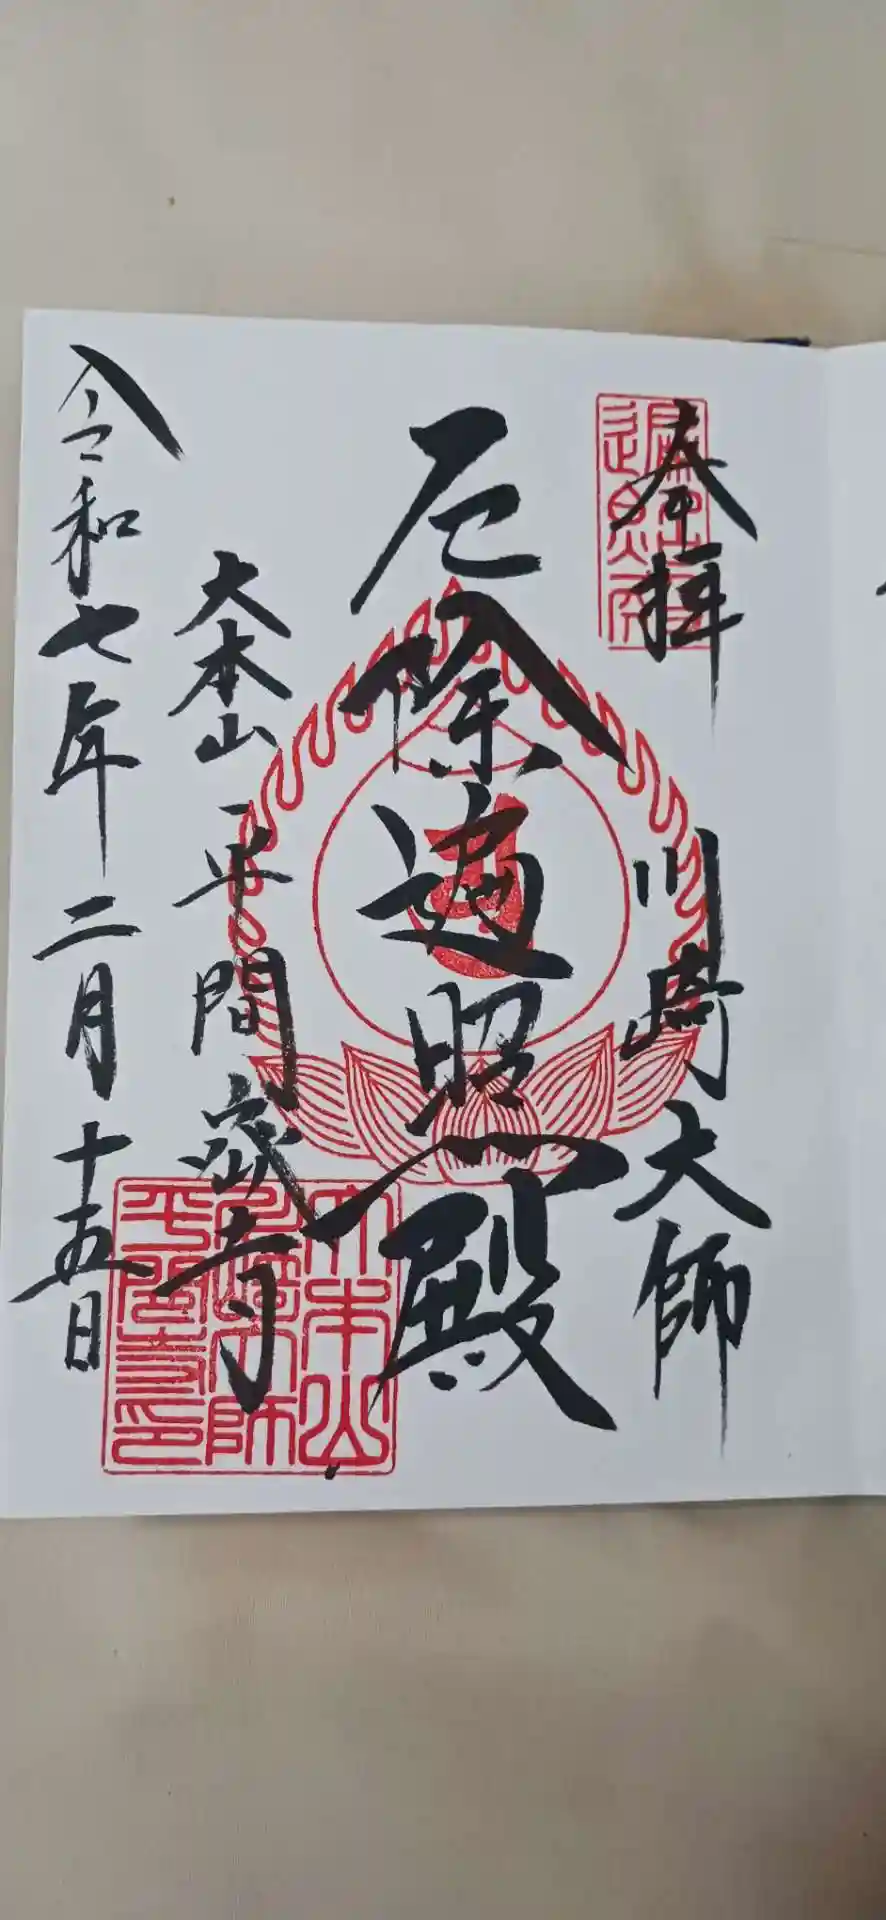 奉拝
川崎大師
厄除遍照殿
大本山 平間寺
令和七年二月十五日
大本山
川崎大師
平間寺印